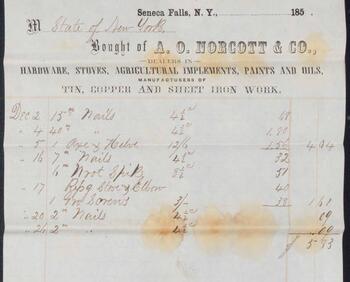 Seneca Falls, N. Y., 185
M State of New York,
Bought of A. O. NORCOTT & CO.,
DEALERS IN
HARDWARE, STOVES, AGRICULTURAL IMPLEMENTS, PAINTS AND OILS,
MANUFACTURERS OF
TIN, COPPER AND SHEET IRON WORK.
Dec 2 15 Nails 4½
4 40 " 4½ 1,80
5 1 Axe & Helve 12/6 1,56 4 04
16 7 " Nails 4½ 32
6 " Spike 8½ 51
17 Rpg Stove & Elbow 40
1 Screws 3/- 38 1 61
20 2 " Nails 4½ 09
26 2 " Nails 4½
$ 5 73